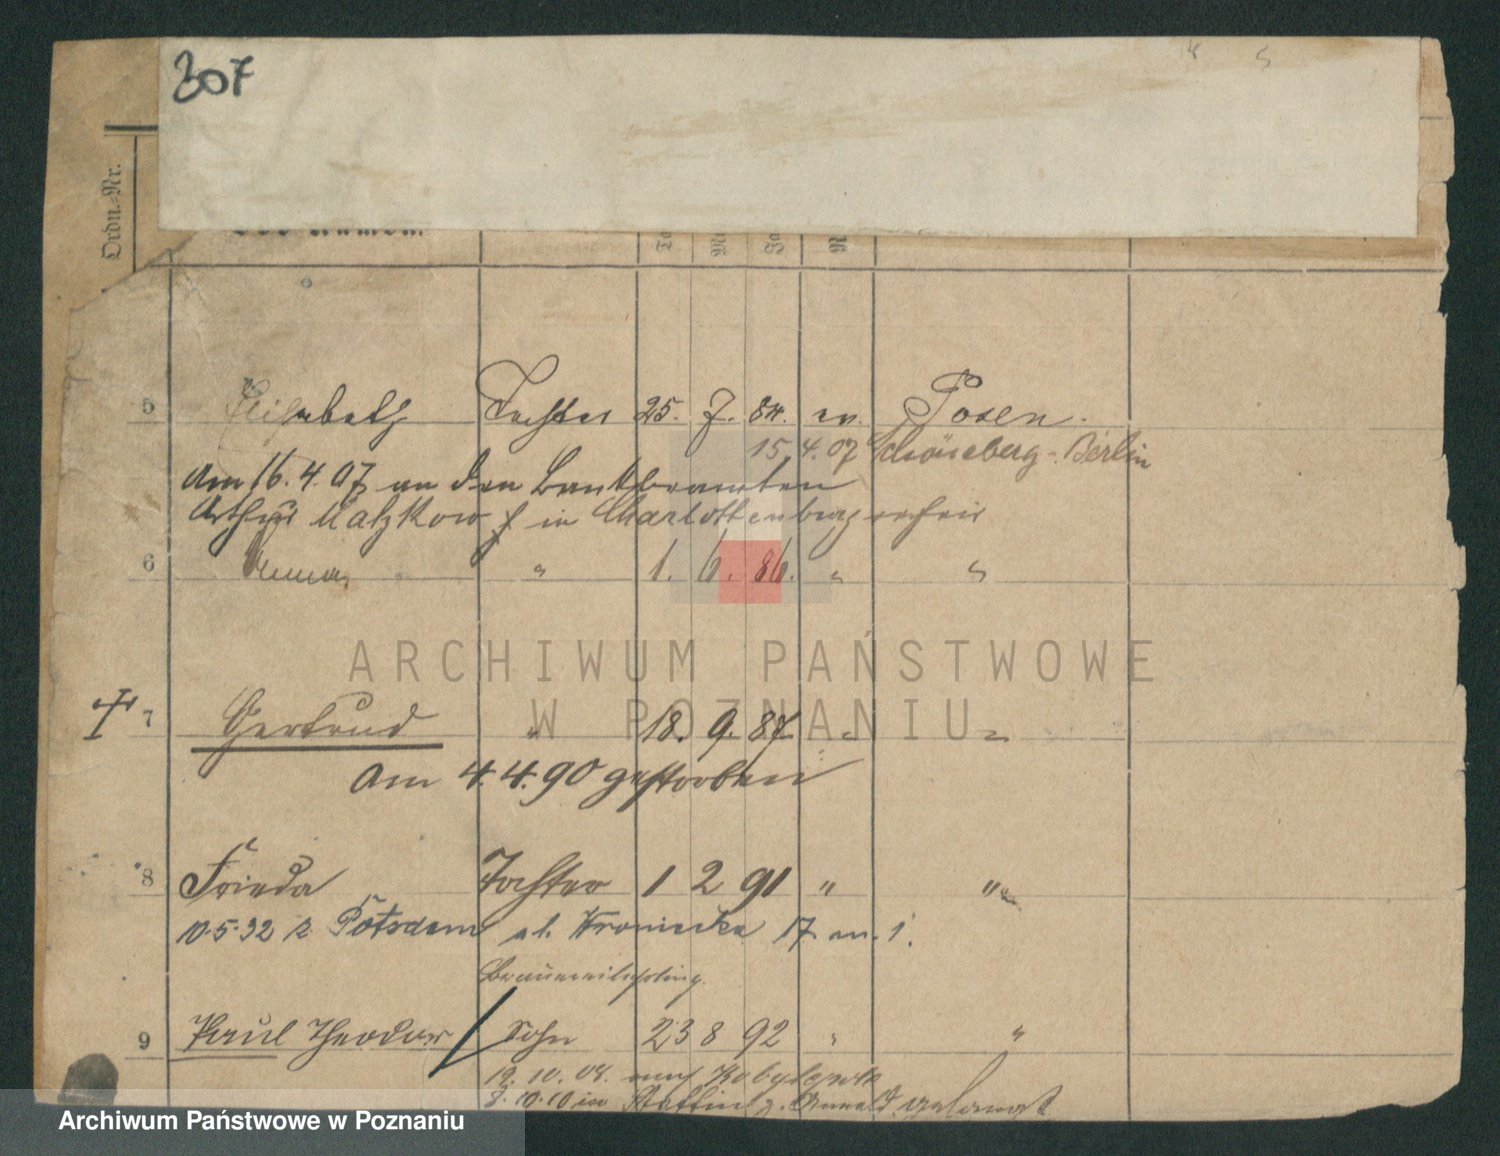 307
Ordn.-Nr.
5 Elisabeth Tochter 25. 7. 84. ev. Posen.
15.4.07 Schöneberg-Berlin
Am 16.4.07 an den Bankbeamten
Arthur Matzkow in Charlottenburg verheir
6 Anna " 1. 6. 86. " "
7 Gertrud " 18. 9. 87 " "
Am 4.4.90 gestorben
8 Frieda Tochter 1 2 91 " "
10.5.32 Potsdam 17
9 Paul Theodor Sohn 23 8 92 " "
19. 10. 08. nach
3.10.10 in Stettin z. gelangt
ARCHIWUM PAŃSTWOWE
W POZNANIU
Archiwum Państwowe w Poznaniu